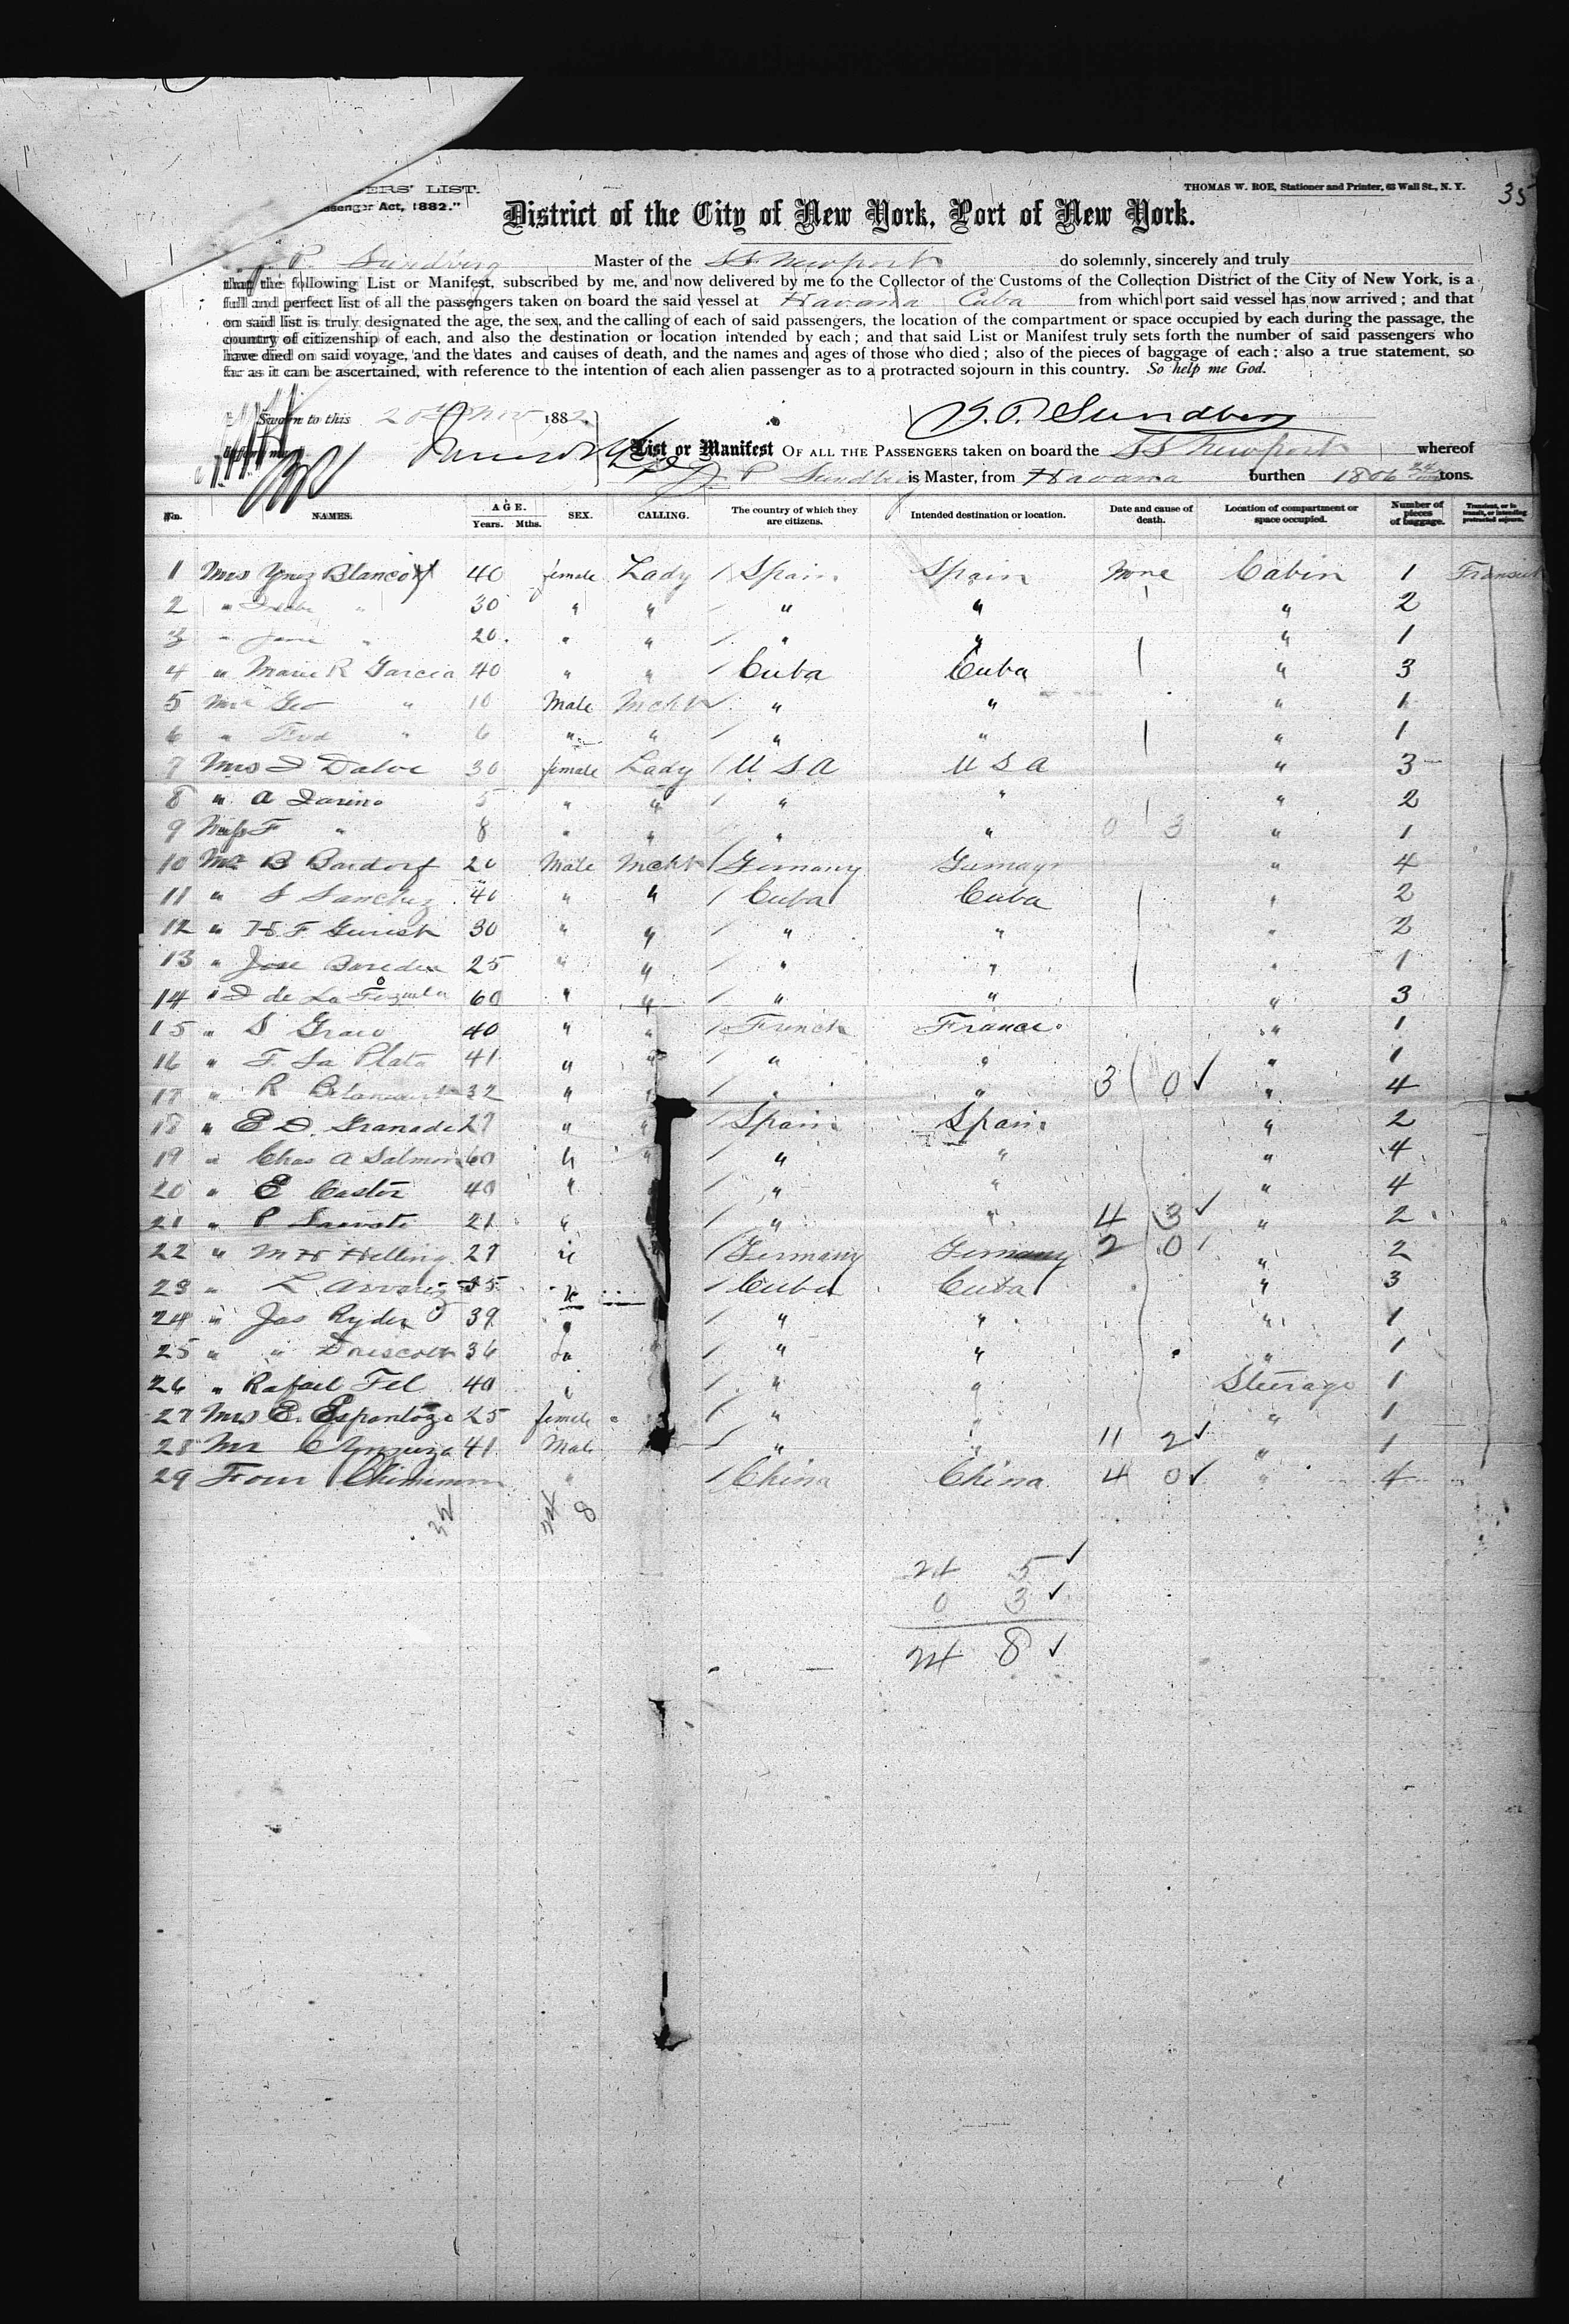 ERS' LIST.
THOMAS W. ROE, Stationer and Printer, 63 Wall St., N. Y.
35
ssenger Act, 1882."
District of the City of New York, Port of New York.
P. Sundberg Master of the SS Newport do solemnly, sincerely and truly
that the following List or Manifest, subscribed by me, and now delivered by me to the Collector of the Customs of the Collection District of the City of New York, is a
full and perfect list of all the passengers taken on board the said vessel at Havana Cuba from which port said vessel has now arrived; and that
on said list is truly designated the age, the sex, and the calling of each of said passengers, the location of the compartment or space occupied by each during the passage, the
country of citizenship of each, and also the destination or location intended by each; and that said List or Manifest truly sets forth the number of said passengers who
have died on said voyage, and the dates and causes of death, and the names and ages of those who died; also of the pieces of baggage of each; also a true statement, so
far as it can be ascertained, with reference to the intention of each alien passenger as to a protracted sojourn in this country. So help me God.
Sworn to this 20th Nov 1882
P. Sundberg
List or Manifest OF ALL THE PASSENGERS taken on board the SS Newport whereof
P Sundberg is Master, from Havana burthen 1806 tons.
No. NAMES. AGE. Years. Mths. SEX. CALLING. The country of which they are citizens. Intended destination or location. Date and cause of death. Location of compartment or space occupied. Number of pieces of baggage. Transient, or in transit, or intending protracted sojourn.
1 Mrs Ynez Blanco 40 female Lady / Spain Spain None Cabin 1 Transient
2 " " 30 " " / " " " 2
3 " Jane " 20 " " / " " " 1
4 " Marie R Garcia 40 " " / Cuba Cuba " 3
5 Geo " 10 Male Mcht " " " 1
6 " Fred " 6 " " / " " " 1
7 Mrs 30 female Lady / U S A U S A " 3
8 " A 5 " " / " " " 2
9 Miss F " 8 " " / " " 0 3 " 1
10 Mr B Bardorf 20 Male Mcht / Germany Germany " 4
11 " S Sanchez 40 " " / Cuba Cuba " 2
12 " H. F 30 " " / " " " 2
13 " Jose 25 " " / " " " 1
14 " de La 60 " " / " " " 3
15 " S 40 " " / French France " 1
16 " F. La Plata 41 " " / " " " 1
17 " R 32 " " / " " 3 0 ✓ " 4
18 " E D. Granade 27 " " / Spain Spain " 2
19 " Chas A Salmon 60 " " / " " " 4
20 " E Castor 40 " / " " " 4
21 " P 21 " / " " 4 3 ✓ " 2
22 " M H Helling 27 " / Germany Germany 2 0 " 2
23 " L 35 " / Cuba Cuba " 3
24 " Jas Ryder 39 " / " " " 1
25 " " Driscoll 36 " / " " " 1
26 " Rafael Fel 40 " / " " Steerage 1
27 Mrs E. Espantozo 25 female / " " " 1
28 Mr 41 Male / " " 11 2 ✓ " 1
29 Four Chinamen " / China China 4 0 ✓ " 4
24 8
24 5 ✓
0 3 ✓
24 8 ✓